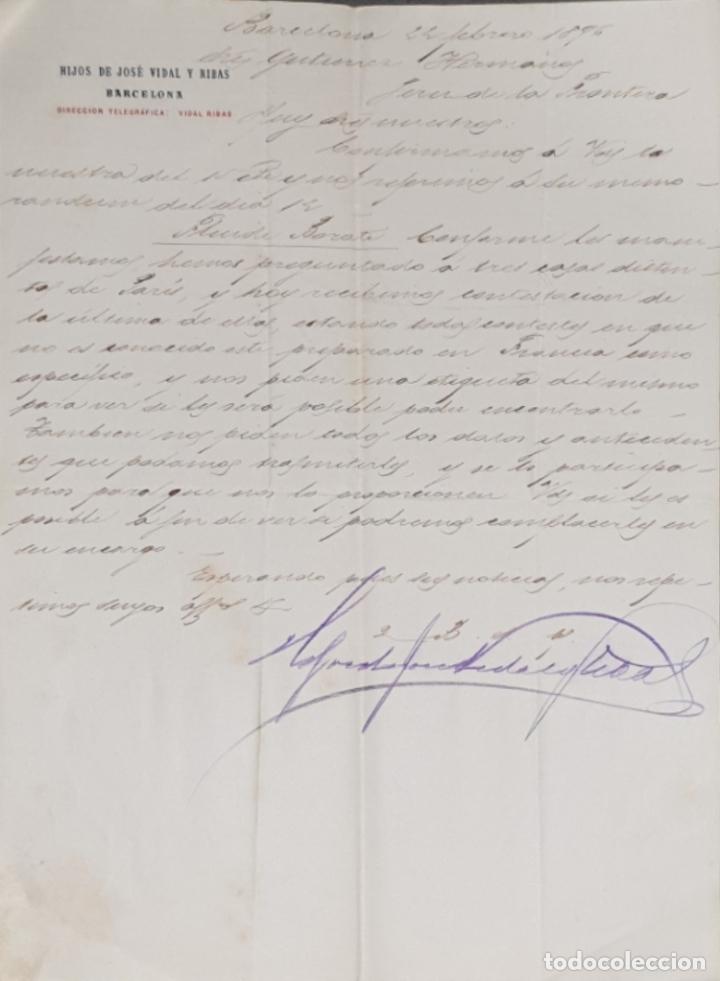 Barcelona 22 febrero 1896
HIJOS DE JOSÉ VIDAL Y RIBAS
BARCELONA
DIRECCION TELEGRÁFICA: VIDAL RIBAS
Gutierrez Hermanos
Jerez de la Frontera
Muy nuestros:
Confirmamos á Vds la
nuestra del y nos referimos á su memo-
randum del dia 12
Conforme les mani-
festamos, hemos preguntado á tres casas distin-
tas de Paris, y hoy recibimos contestacion de
la última de ellas, estando todas contestes en que
no es conocido este preparado en Francia como
específico, y nos piden una etiqueta del mismo
para ver si les será posible poder encontrarlo.
Tambien nos piden todos los datos y antecede
tes que podamos trasmitirles, y se lo participa-
mos para que nos lo proporcionen Vds si les es
posible á fin de ver si podremos complacerles en
su encargo.
Esperando pues sus noticias, nos repe-
timos suyos
Hijos de José Vidal y Ribas
todocoleccion.net